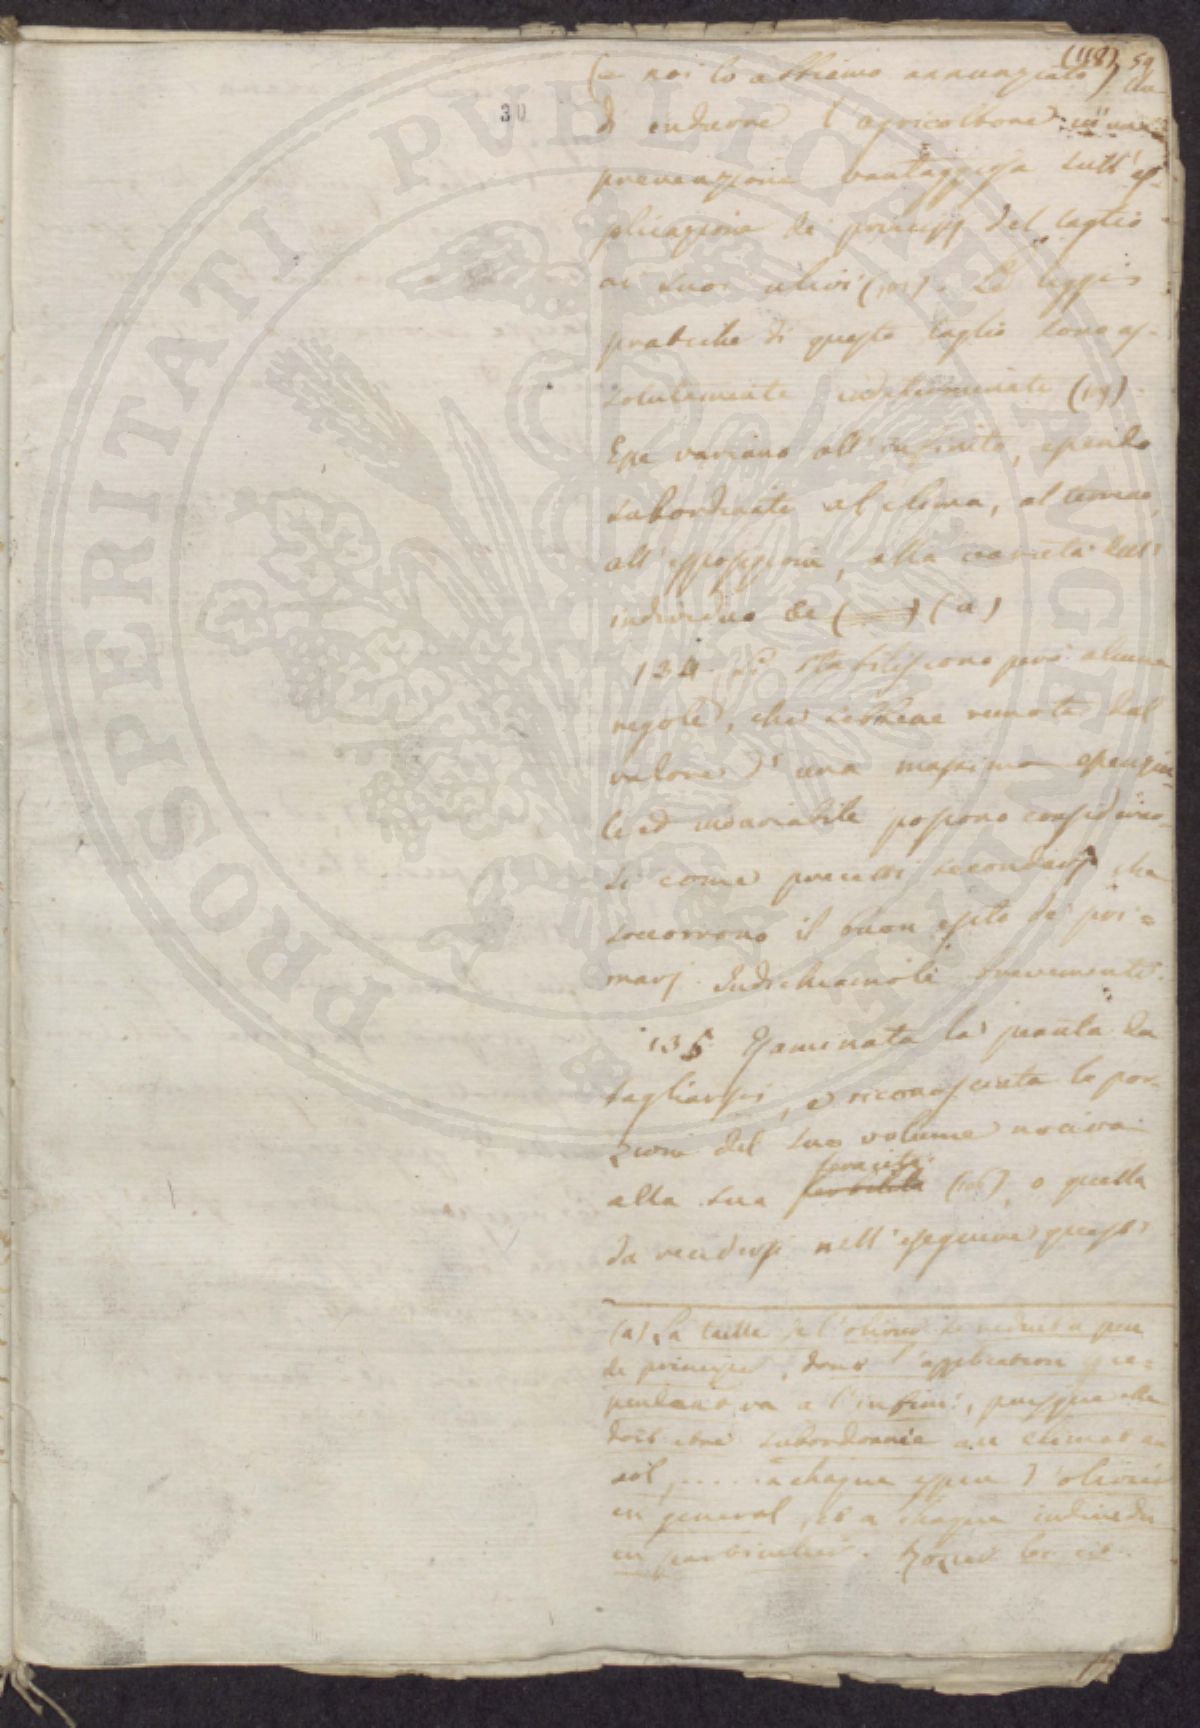 (118) 59
30
(e noi lo abbiamo annunziato)
di indurre l'agricoltore in una
prevenzione vantaggiosa sull'ap-
plicazione de principj del taglio
ai suoi ulivi (101). Le leggi
pratiche di questo taglio sono as-
solutamente indeterminate (19).
Esse variano all'infinito, essendo
subordinate al clima, al terreno,
all'esposizione, alla varietà dell'
individuo &c (a)
134. Si stabiliscono però alcune
regole, che sebbene remote dal
valore d'una massima essenzia-
le ed invariabile possono considerar-
si come precetti secondarj che
soccorrono il buon esito de' pri=
marj. Indichiamoli brevemente.
135 Esaminata la pianta da
tagliarsi, e riconosciuta la por-
zione del suo volume nociva
alla sua feracità fertilità (106), o quella
da recidersi nell'eseguire questi
(a) La taille de l'olivier se reduit a peu
de principes, dont l'application ce=
pendant va a l'infini, puisque elle
doit etre subordonnée au climat au
sol, ..... a chaque espece d'olivier
en general, et a chaque individu
en particulier. Rozier loc. cit.